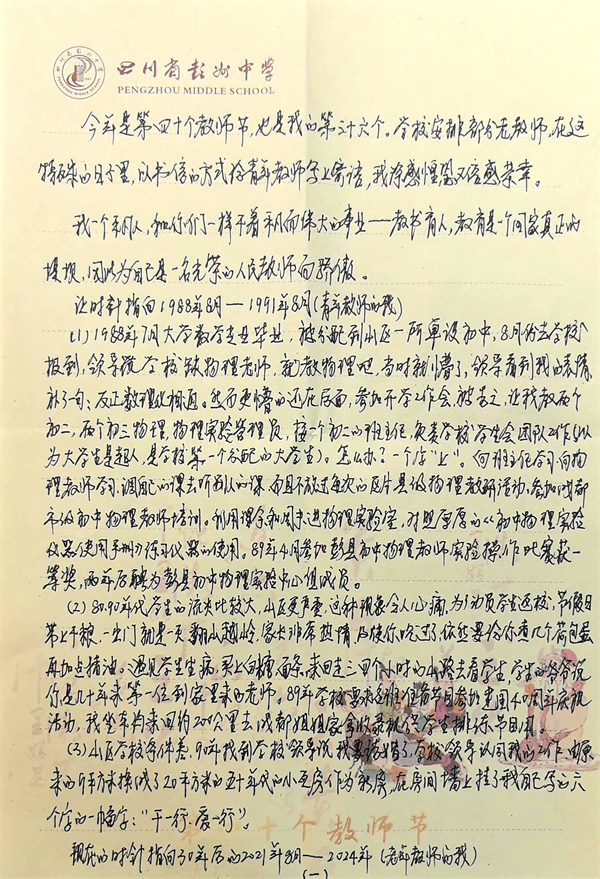 四川省彭州中学
PENGZHOU MIDDLE SCHOOL
今年是第四十个教师节，也是我的第三十六个。学校安排部分老教师，在这
特殊的日子里，以书信的方式给青年教师写上寄语，我深感惶恐又倍感荣幸。
我一个平凡人，和你们一样干着平凡而伟大的事业——教书育人，教育是一个国家真正的
堤坝，因此为自己是一名光荣的人民教师而骄傲。
让时针指向1988年8月—1991年8月（青年教师的我）
(1) 1988年7月大学数学专业毕业，被分配到山区一所单设初中，8月份去学校
报到，领导说学校缺物理老师，就教物理吧，当时就懵了，领导看到我的表情，
补了句：反正数理化相通。然而更懵的还在后面，参加开学工作会，被告之，让我教两个
初二，两个初三物理，物理实验管理员，接一个初二的班主任，负责学校学生会团队工作（认
为大学生是超人，是学校第一个分配的大学生）。怎么办？一个字“上”。向班主任学习，向物
理教师学习，调自己的课去听别人的课，而且不放过每次的区片县级物理教研活动，参加成都
市级初中物理教师培训。利用课余和周末进物理实验室，对照厚厚的《初中物理实验
仪器使用手册》练习仪器的使用。89年4月参加彭县初中物理教师实验操作比赛获一
等奖，两年后聘为彭县初中物理实验中心组成员。
(2) 80.90年代学生的流失比较大，山区更严重，这种现象令人心痛，为了动员学生返校，节假日
带上干粮，一出门就是一天翻山越岭，家长非常热情，即使你吃过了，依然要给你煮几个荷包蛋
再加点猪油。遇见学生生病，买上白糖、面条，来回走三四个小时的山路去看学生，学生的爷爷说
你是几十年来第一位到家里来的老师。89年学校要求各班准备节目参加建国40周年庆祝
活动，我坐车约来回约200公里去成都姐姐家拿收录机供学生排练节目用。
(3) 山区学校条件差，90年找到学校领导说我要结婚了，学校领导认同我的工作，由原
来的9平方米换成了20平方米的五十年代的小瓦房作为新房，在房间墙上挂了我自己写的六
个字的一幅字：“干一行、爱一行”。
十个教师节
现在的时针指向30年后的2021年8月—2024年（老年教师的我）
（一）